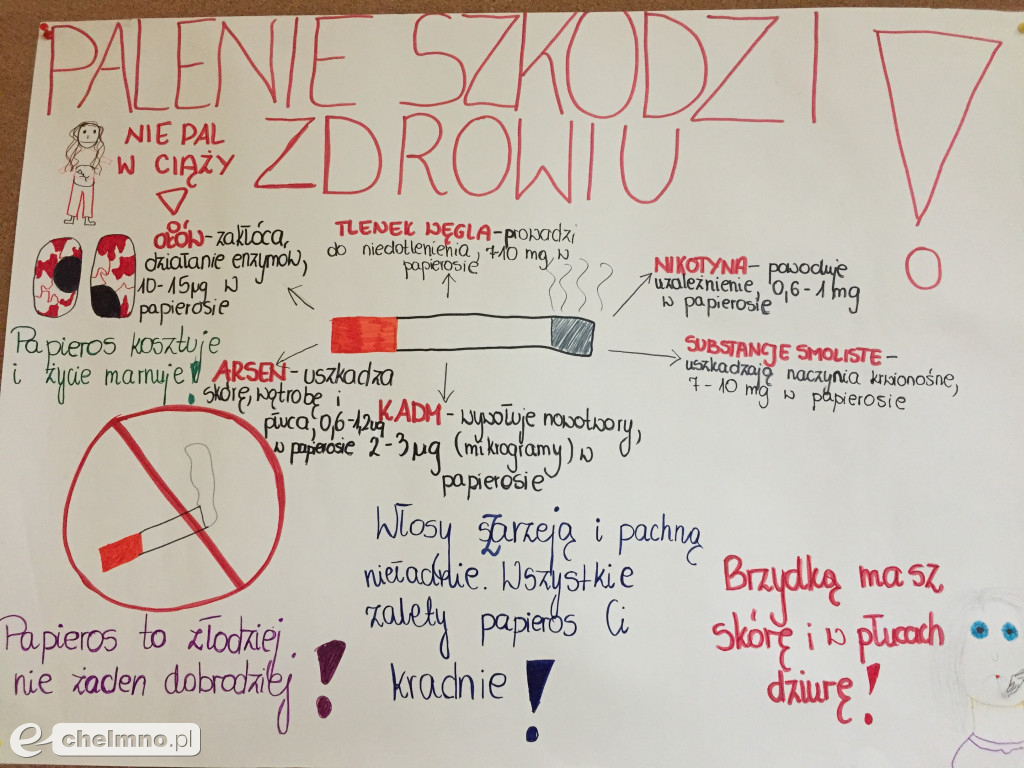 PALENIE SZKODZI
ZDROWIU !
NIE PAL
W CIĄŻY
!
OŁÓW - zakłóca,
działanie enzymów,
10-15µg w
papierosie
TLENEK WĘGLA - prowadzi
do niedotlenienia, 710 mg w
papierosie
NIKOTYNA - powoduje
uzależnienie, 0,6-1 mg
w papierosie
SUBSTANCJE SMOLISTE -
uszkadzają naczynia krwionośne,
7-10 mg w papierosie
Papieros kosztuje
i życie marnuje!
ARSEN - uszkadza
skórę, wątrobę i
płuca, 0,6-1,2ug
w papierosie
KADM - wywołuje nowotwory,
2-3µg (mikrogramy) w
papierosie
Włosy szarzeją i pachną
nieładnie. Wszystkie
zalety papieros Ci
kradnie !
Brzydką masz
skórę i w płucach
dziurę!
Papieros to złodziej.
nie żaden dobrodziej !
e-chelmno.pl